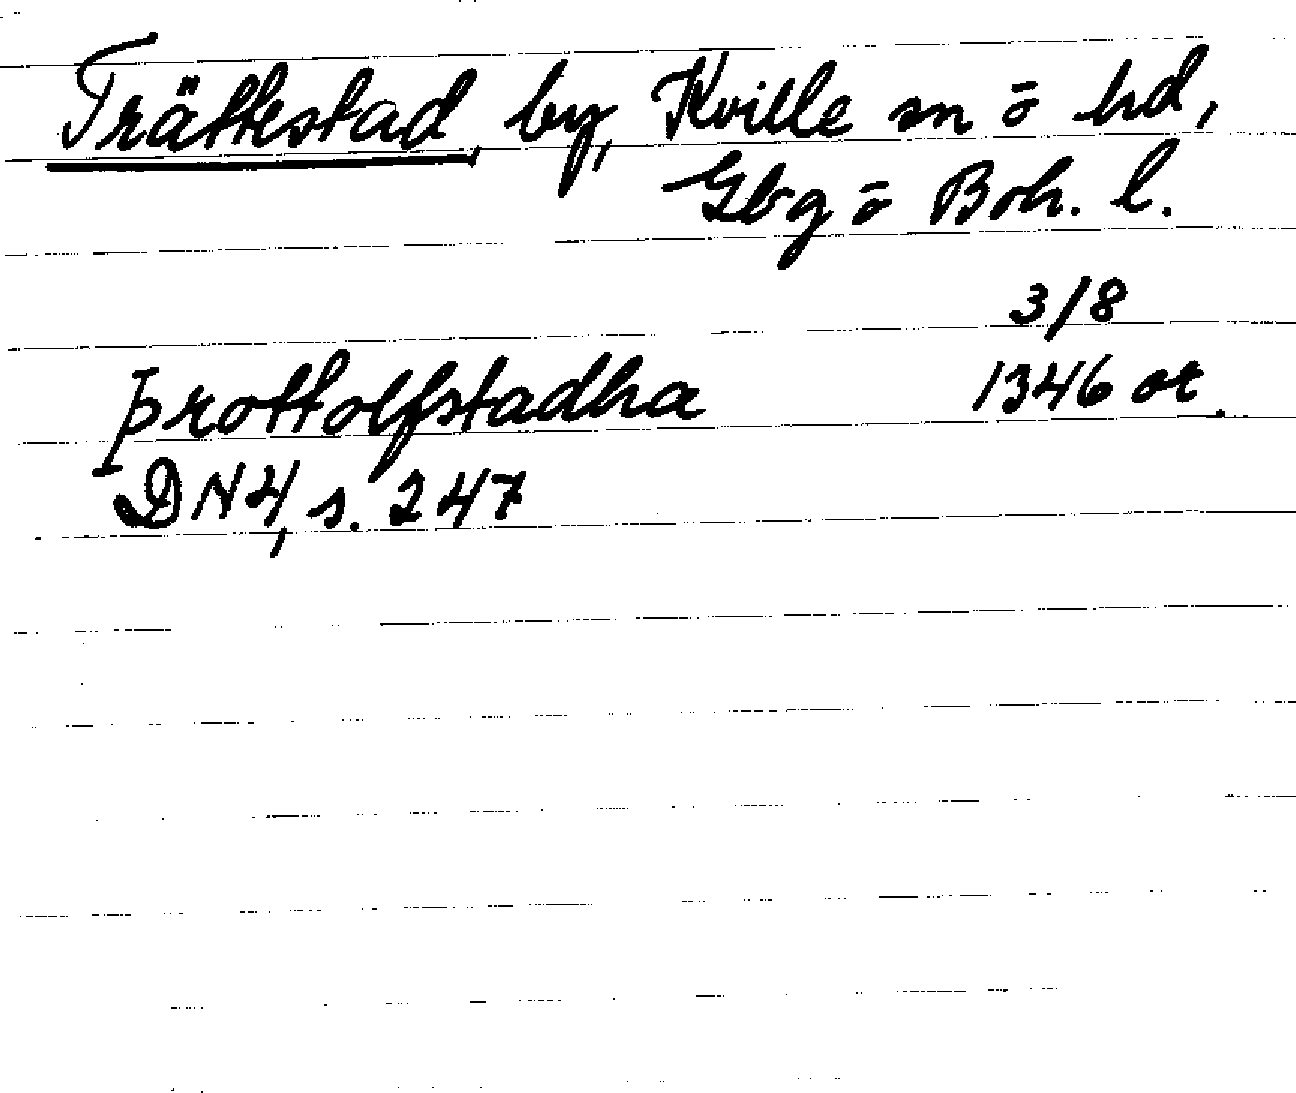 Trättestad, by, Kville sn o hd,
Gbg o Boh. l.
3/8
þrottolfstadha 1346 or.
DN 4, s. 247